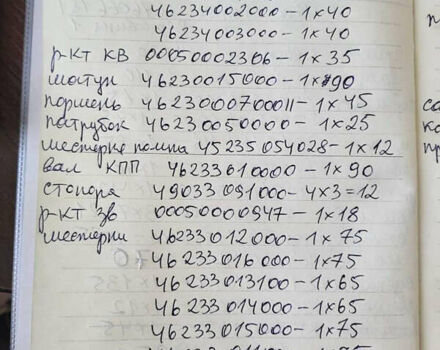 46234002000 - 1x40
46234003000 - 1x40
р-кт КВ 00050002306 - 1x35
шатун 46230015000 - 1x90
поршень 4623000700011 - 1x45
патрубок 46230050000 - 1x25
шестерке помпа 45235054028 - 1x12
вал КПП 46233010000 - 1x90
стопора 49033091000 - 4x3=12
р-кт зв 00050000947 - 1x18
шестерни 46233012000 - 1x75
46233016000 - 1x75
46233013100 - 1x65
46233014000 - 1x65
46233015000 - 1x75